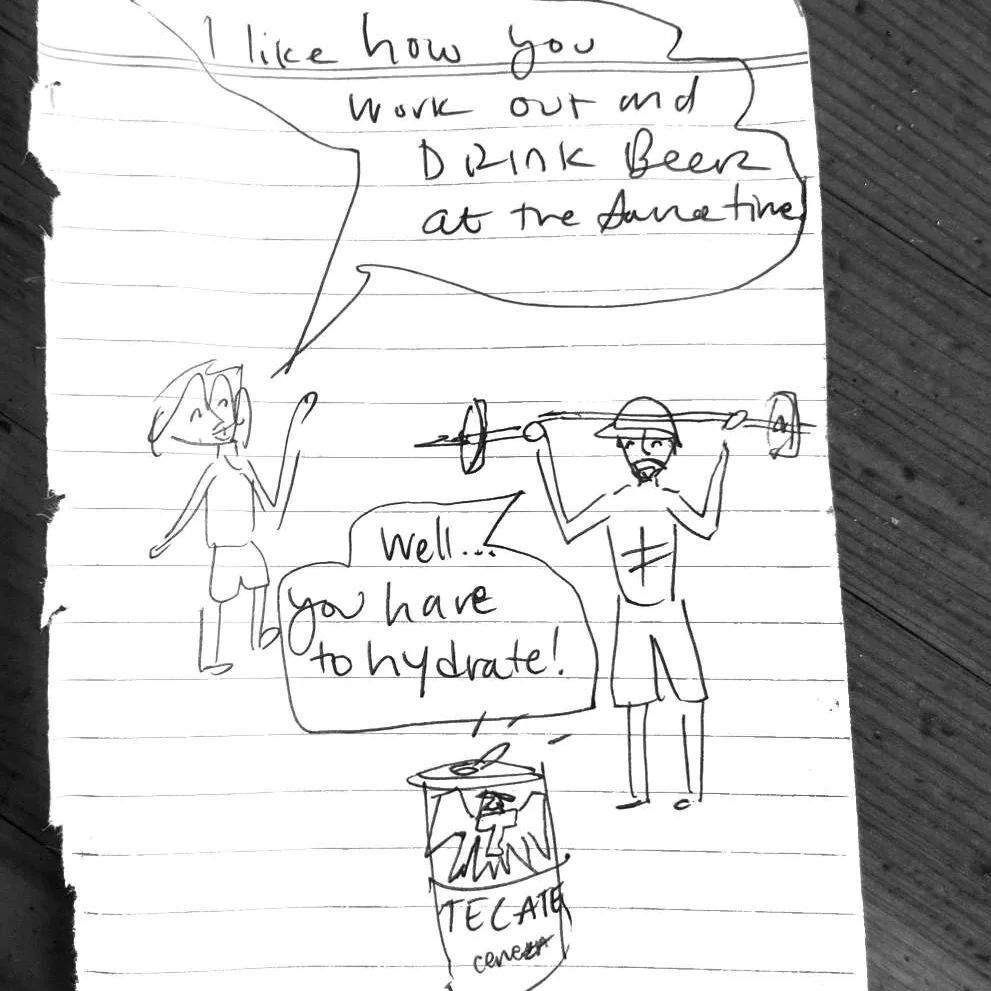 I like how you
work out and
DRINK Beer
at the same time
Well...
you have
to hydrate!
TECATE
cerveza